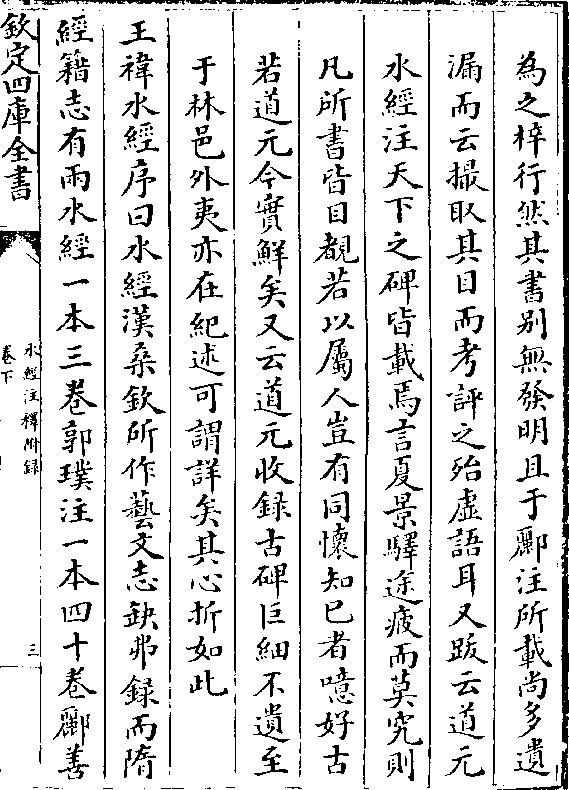 為之梓行然其書别無發明且于酈注所載尚多遺
漏而云撮取其目而考評之殆虚語耳又跋云道元
水經注天下之碑皆載焉言夏景驛途疲而莫究則
凡所書皆目覩若以屬人豈有同懷知已者噫好古
若道元今實鮮矣又云道元收録古碑巨細不遺至
于林邑外夷亦在紀述可謂詳矣其心折如此
王禕水經序曰水經漢桑欽所作藝文志缺弗録而隋
經籍志有兩水經一本三卷郭璞注一本四十卷酈善
欽定四庫全書
水經注釋附録
卷下
三